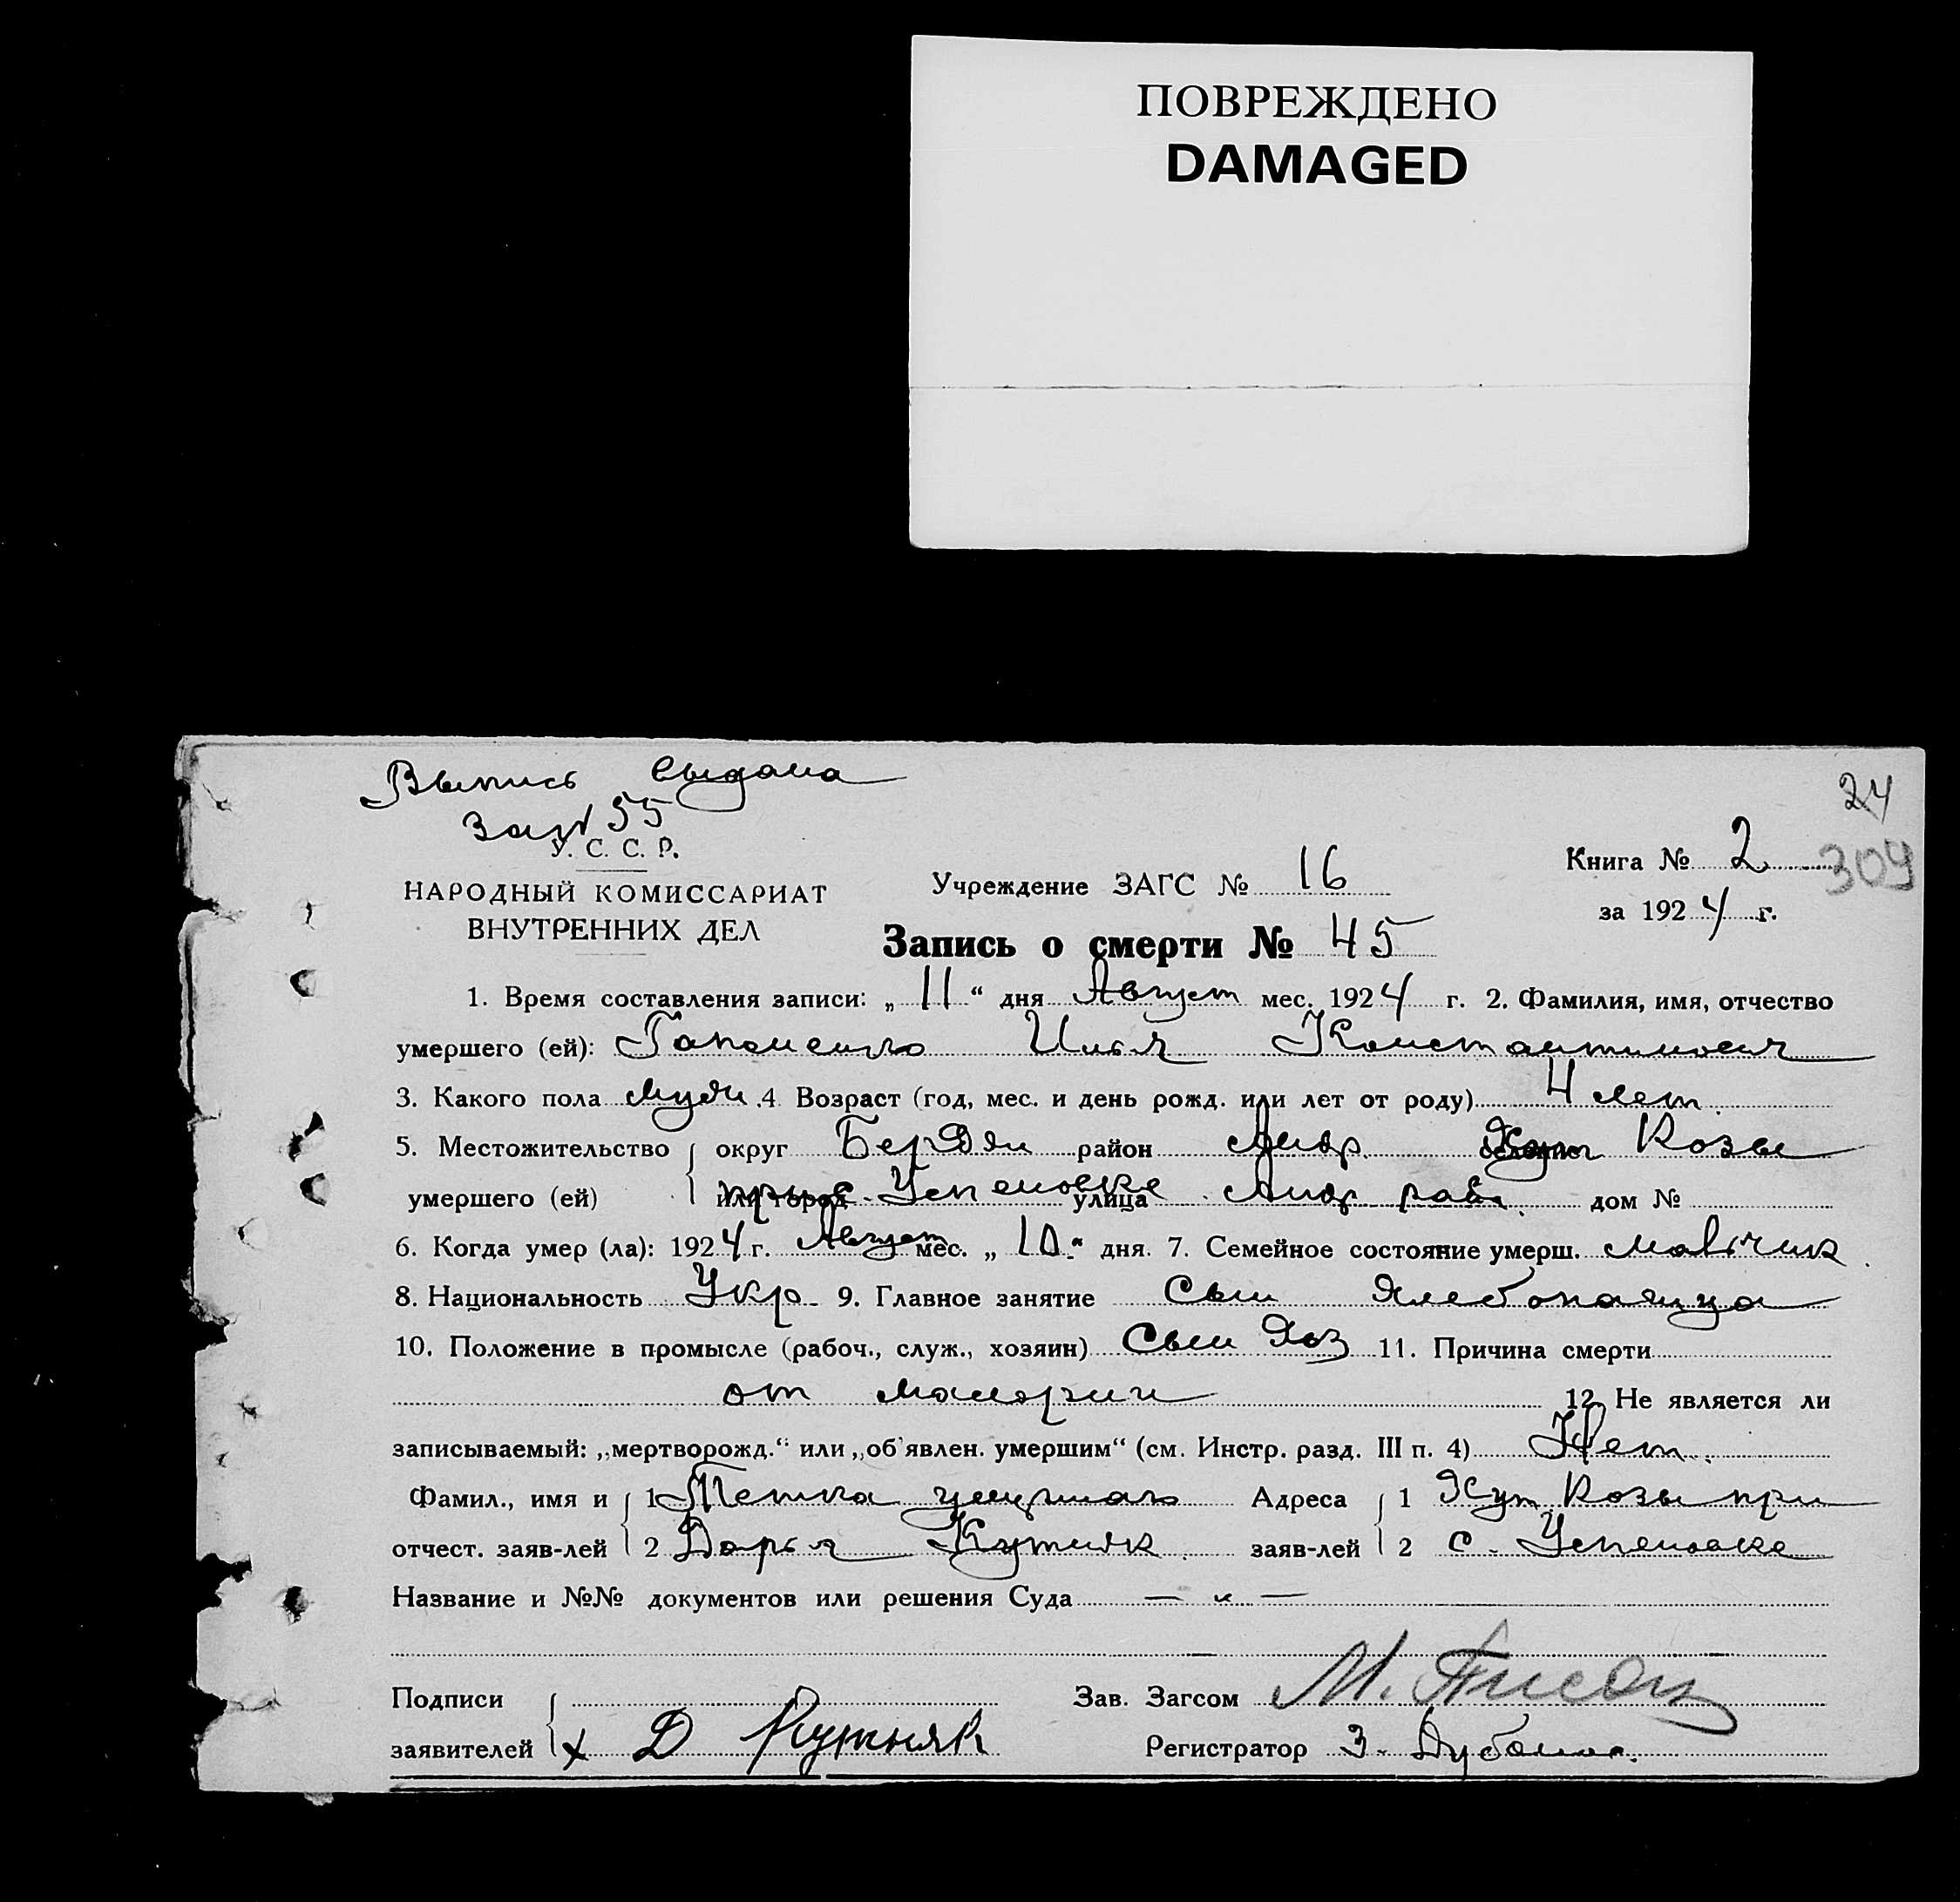 ПОВРЕЖДЕНО
DAMAGED
Выпись выдана
за № 55
24
У. С. С. Р.
НАРОДНЫЙ КОМИССАРИАТ
ВНУТРЕННИХ ДЕЛ
Учреждение ЗАГС № 16
Книга № 2
309
за 1924 г.
Запись о смерти № 45
1. Время составления записи: „ 11 “ дня Август мес. 1924 г. 2. Фамилия, имя, отчество
умершего (ей): Гапоненко Илья Константинович
3. Какого пола муж. 4 Возраст (год, мес. и день рожд. или лет от роду) 4 лет
5. Местожительство округ Бердян район Андр. Хут Козы
умершего (ей) или город при с. Успеновке улица Андр рай. дом №
6. Когда умер (ла): 1924 г. Август мес. „ 10 “ дня. 7. Семейное состояние умерш. мальчик
8. Национальность Укр 9. Главное занятие Сын Хлебопашца
10. Положение в промысле (рабоч., служ., хозяин) Сын Хоз 11. Причина смерти
от малярии 12. Не является ли
записываемый: „мертворожд.“ или „об'явлен. умершим“ (см. Инстр. разд. III п. 4) Нет
Фамил., имя и 1 Тетка умершаго Адреса 1 Хут Козы при
отчест. заяв-лей 2 Дарья Кутняк заяв-лей 2 с. Успеновке
Название и №№ документов или решения Суда — „ —
Подписи Зав. Загсом М.
заявителей х Д Кутняк Регистратор З.